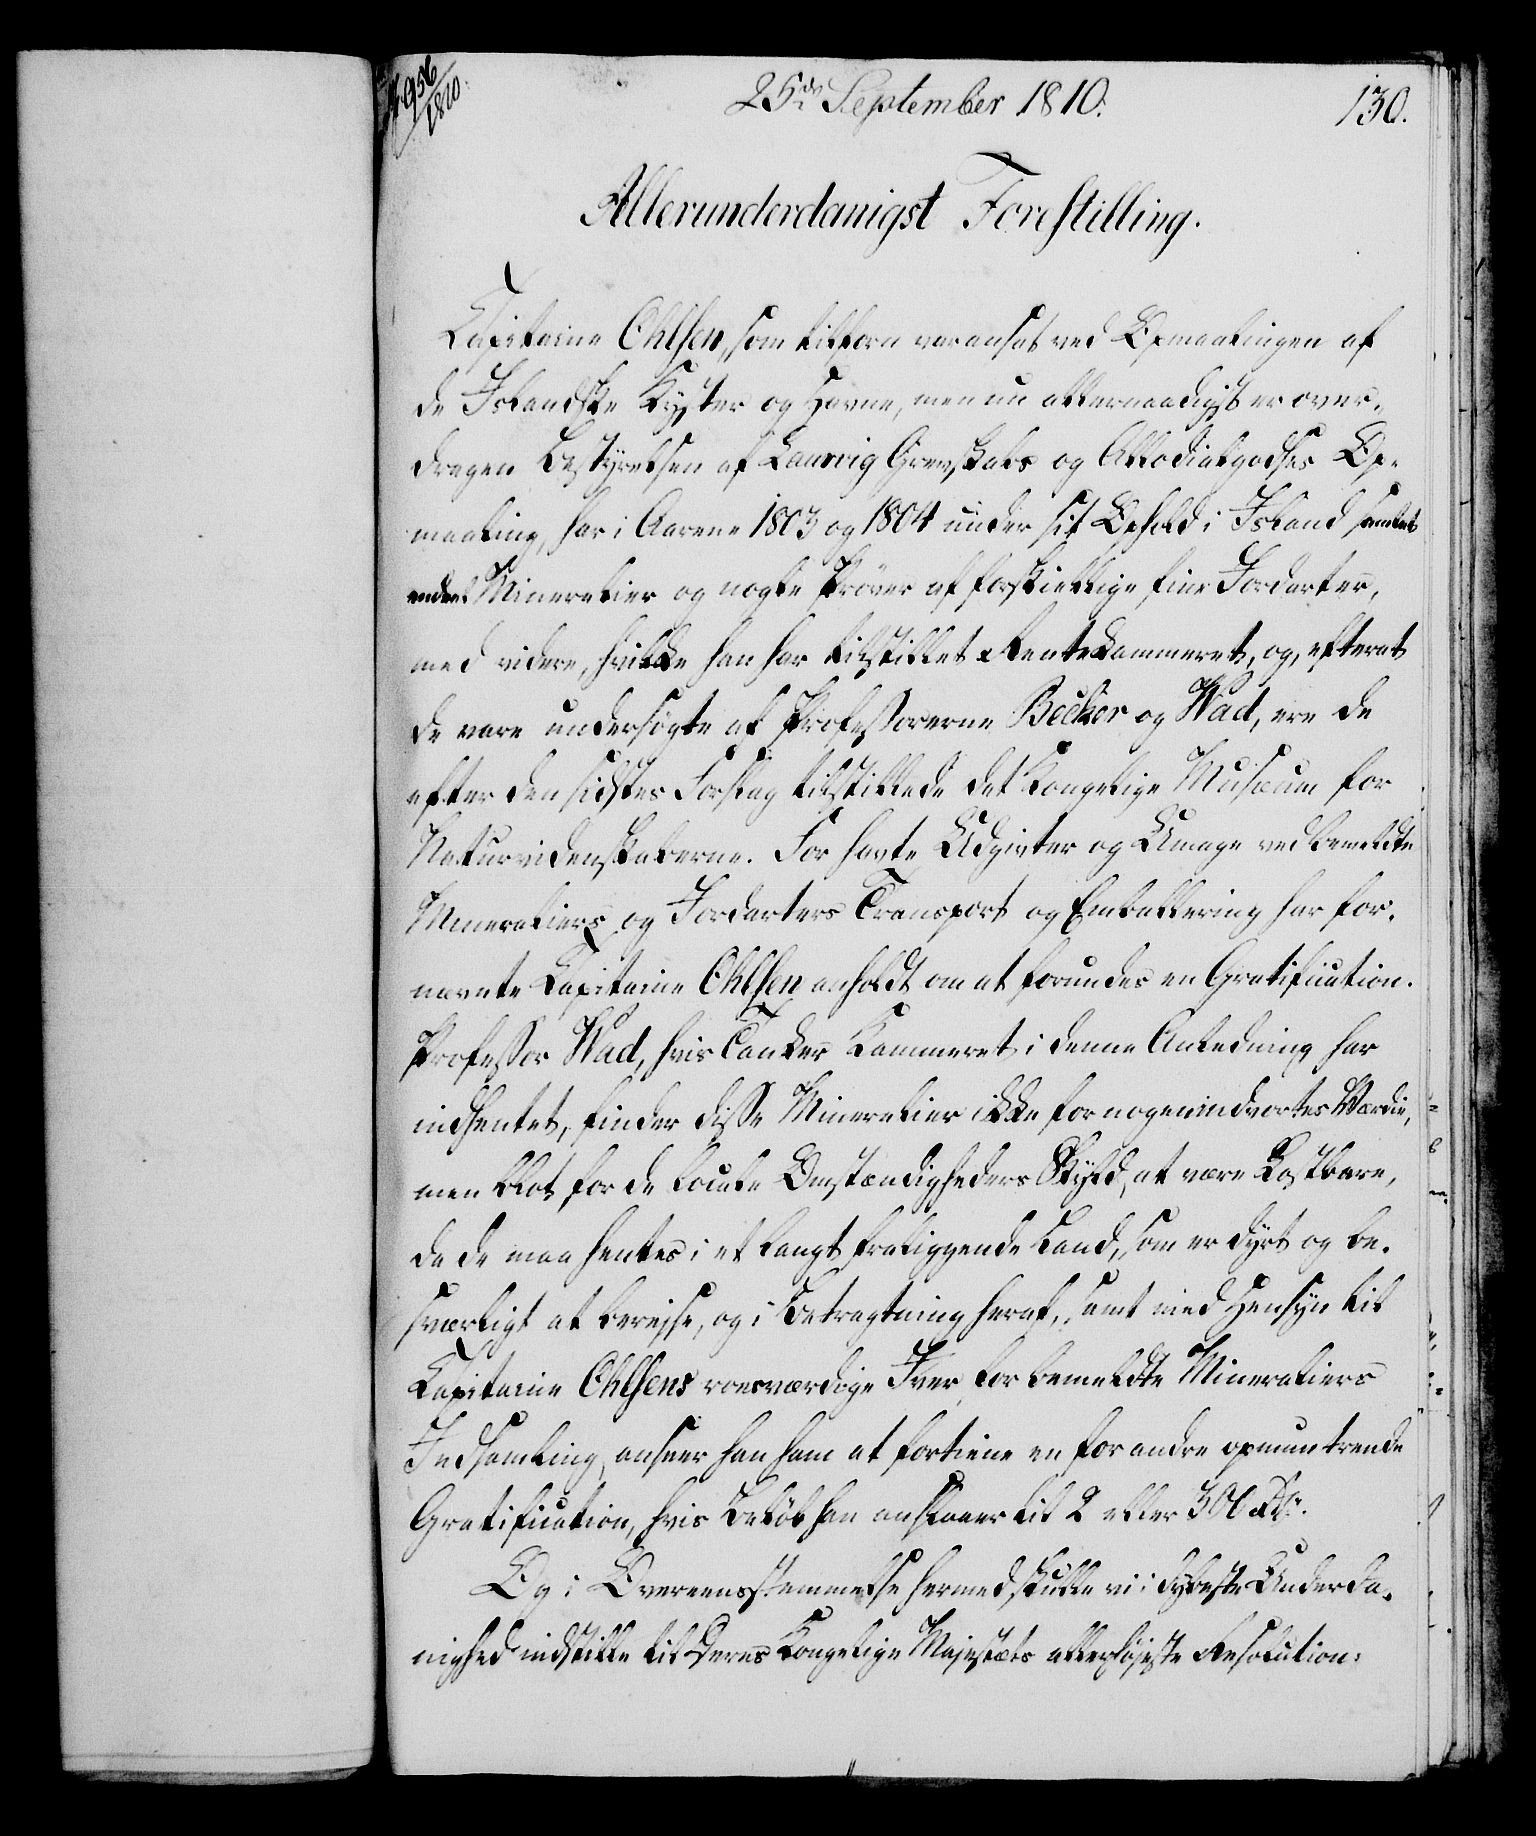 956/1810.
25de September 1810.
130.
Allerunderdanigst Forestilling.
Capitaine Ohlsen, som tilforn var ansat ved Opmaalingen af
de Islandske Kyster og Havne, men nu allernaadigst er over-
dragen Bestyrelsen af Laurvig Grevskabs og Allodialgodses Op-
maaling, har i Aarene 1803 og 1804 under sit Ophold i Island samlet
endeel Mineralier og nogle Prøver af forskiellige fine Jordarter,
med videre, hvilke han har tilstillet Rentekammeret, og, efterat
de vare undersøgte af Professorerne Becker og Wad, ere de
efter den sidstes Forslag tilstillede det Kongelige Musæum for
Naturvidenskaberne. For havte Udgivter og Umage ved bemeldte
Mineraliers og Jordarters Transport og Emballering har for-
nævnte Capitaine Ohlsen anholdt om at forundes en Gratification.
Professor Wad, hvis Tanker Kammeret i denne Anledning har
indhentet, finder disse Mineralier ikke for nogen indvortes Værdie,
men blot for de locale Omstændigheders Skyld, at være kostbare,
da de maa hentes i et langt fraliggende Land, som er dyrt og be-
sværligt at bereise, og i Betragtning heraf, samt med Hensyn til
Capitaine Ohlsens roesværdige Iver for bemeldte Mineraliers
Indsamling, anseer han ham at fortiene en for andre opmuntrende
Gratification, hvis Beløb han anslaaer til 2 eller 300 Rdr.
Og i Overeensstemmelse hermed skulle vi i dybeste Underda-
nighed indstille til Deres Kongelige Majestæts allerhøjeste Resolution: